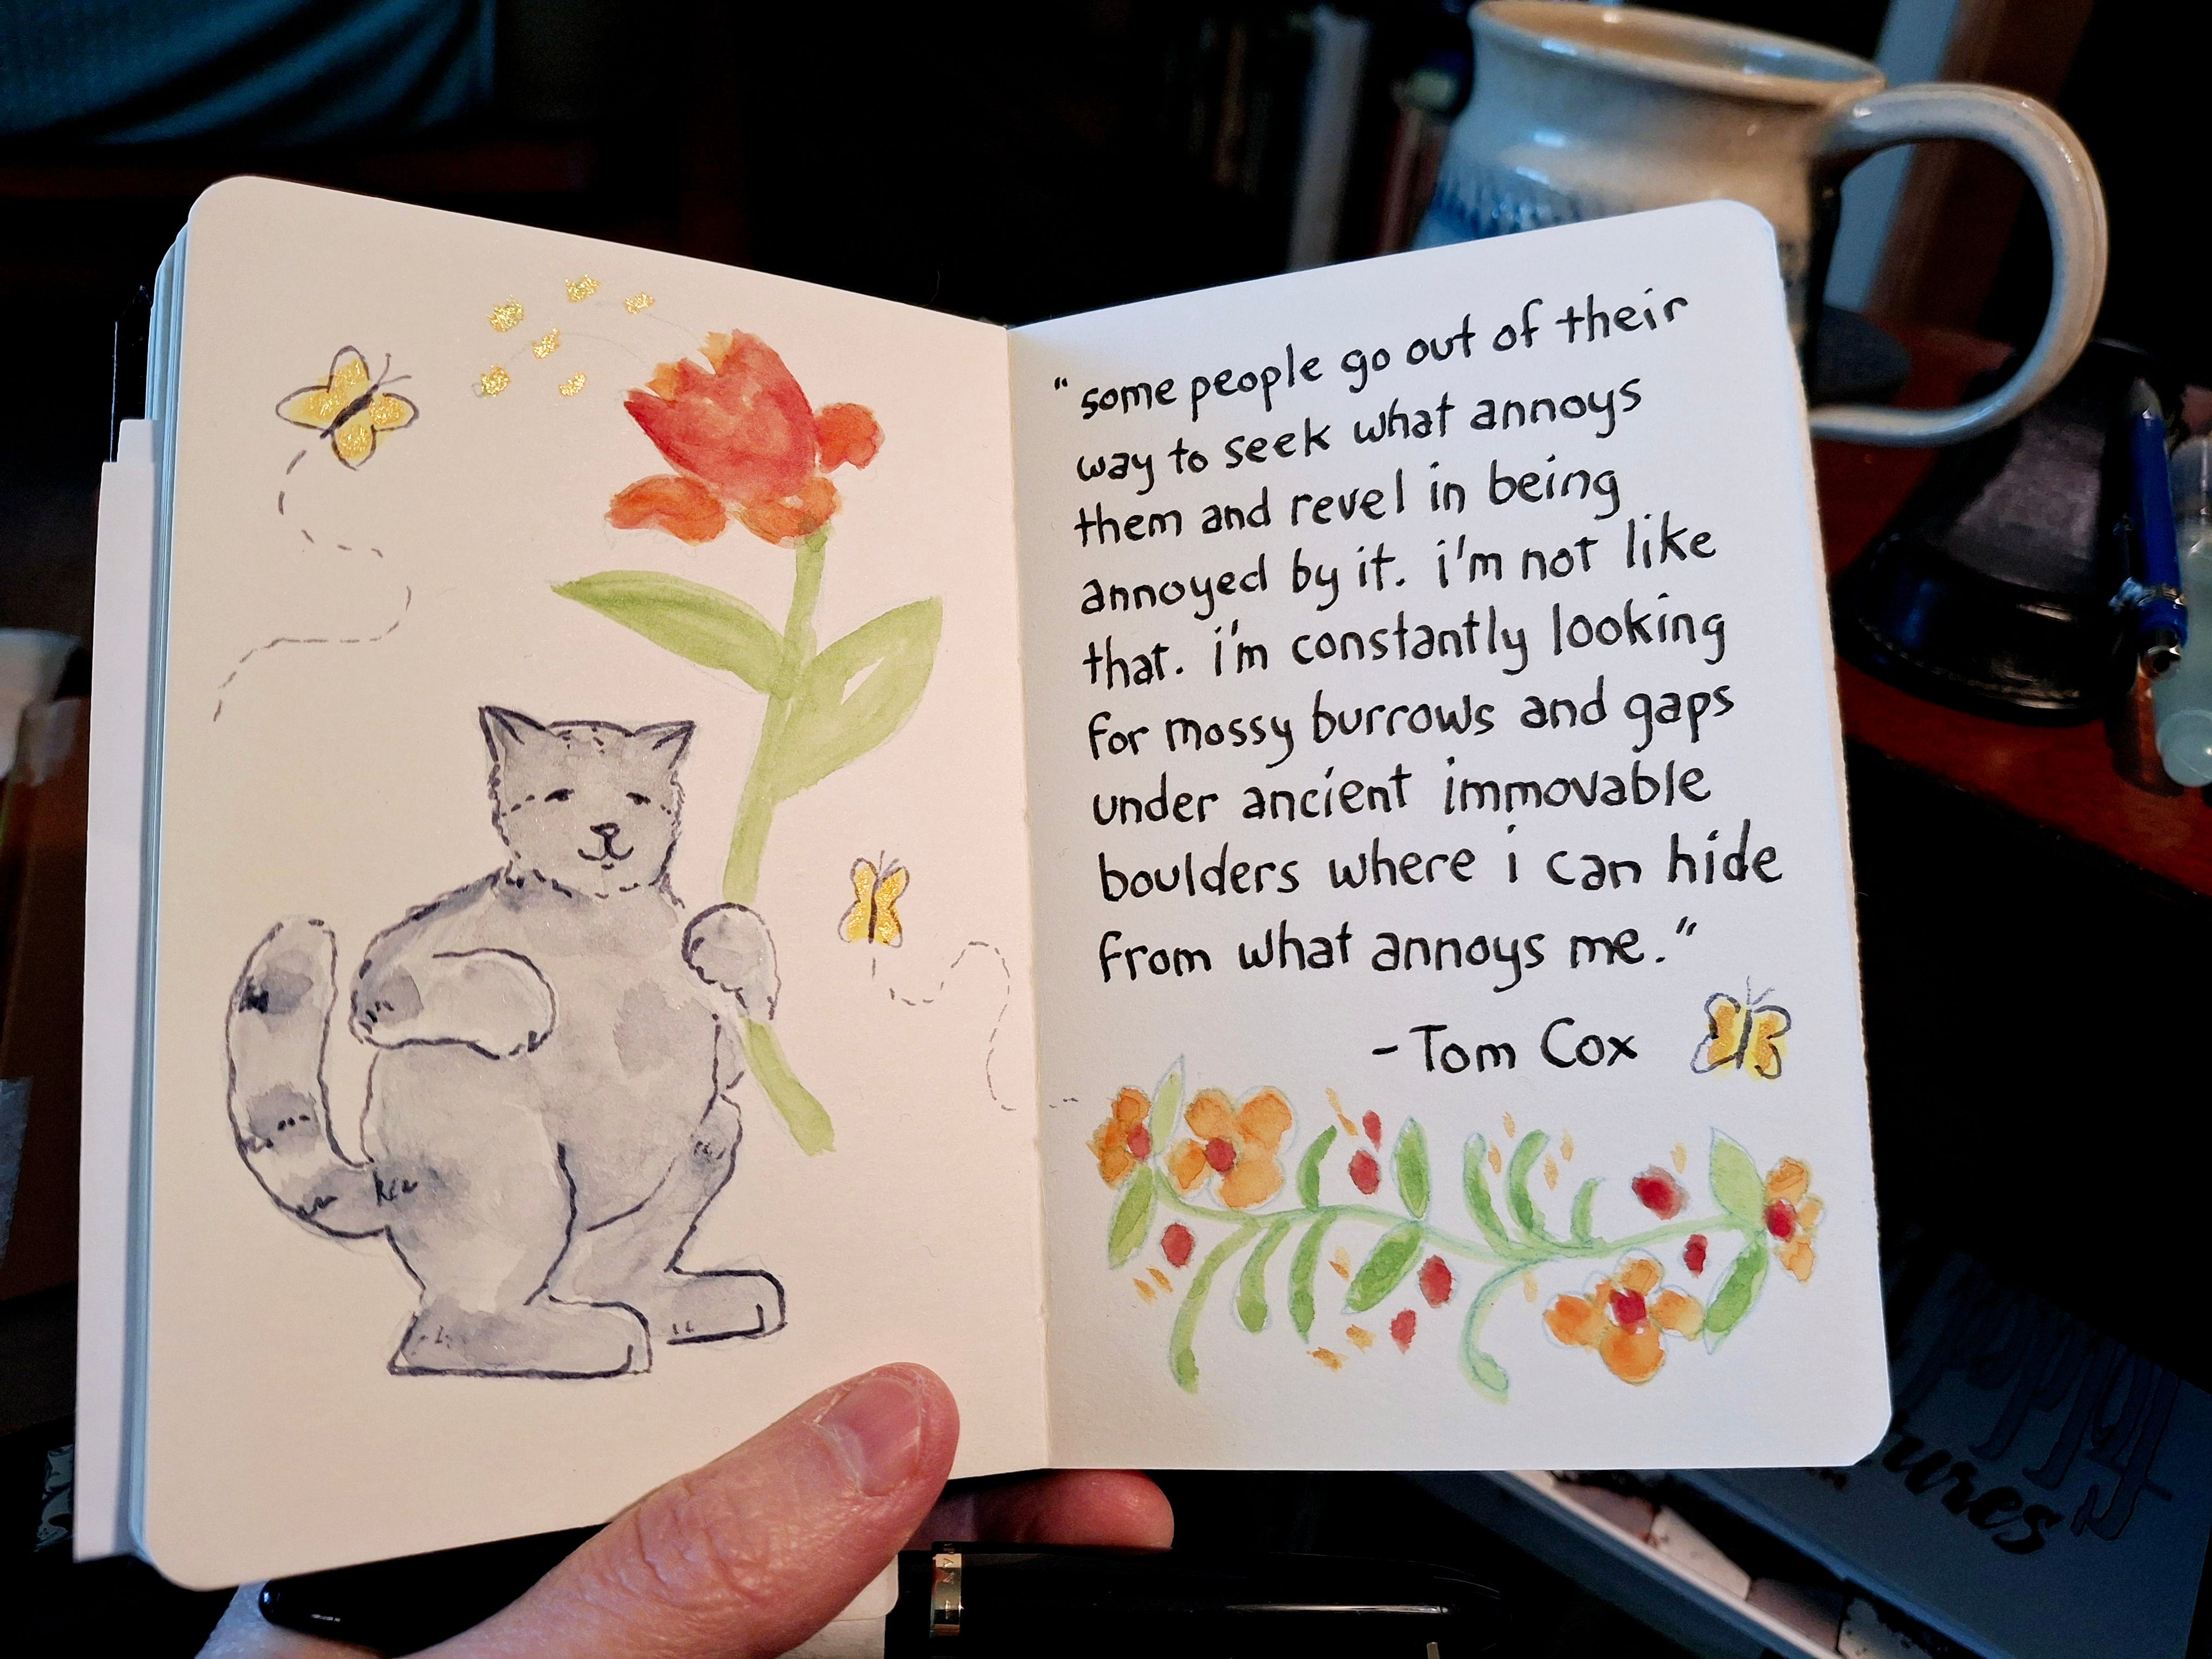 "some people go out of their
way to seek what annoys
them and revel in being
annoyed by it. i'm not like
that. i'm constantly looking
for mossy burrows and gaps
under ancient immovable
boulders where i can hide
from what annoys me."
-Tom Cox